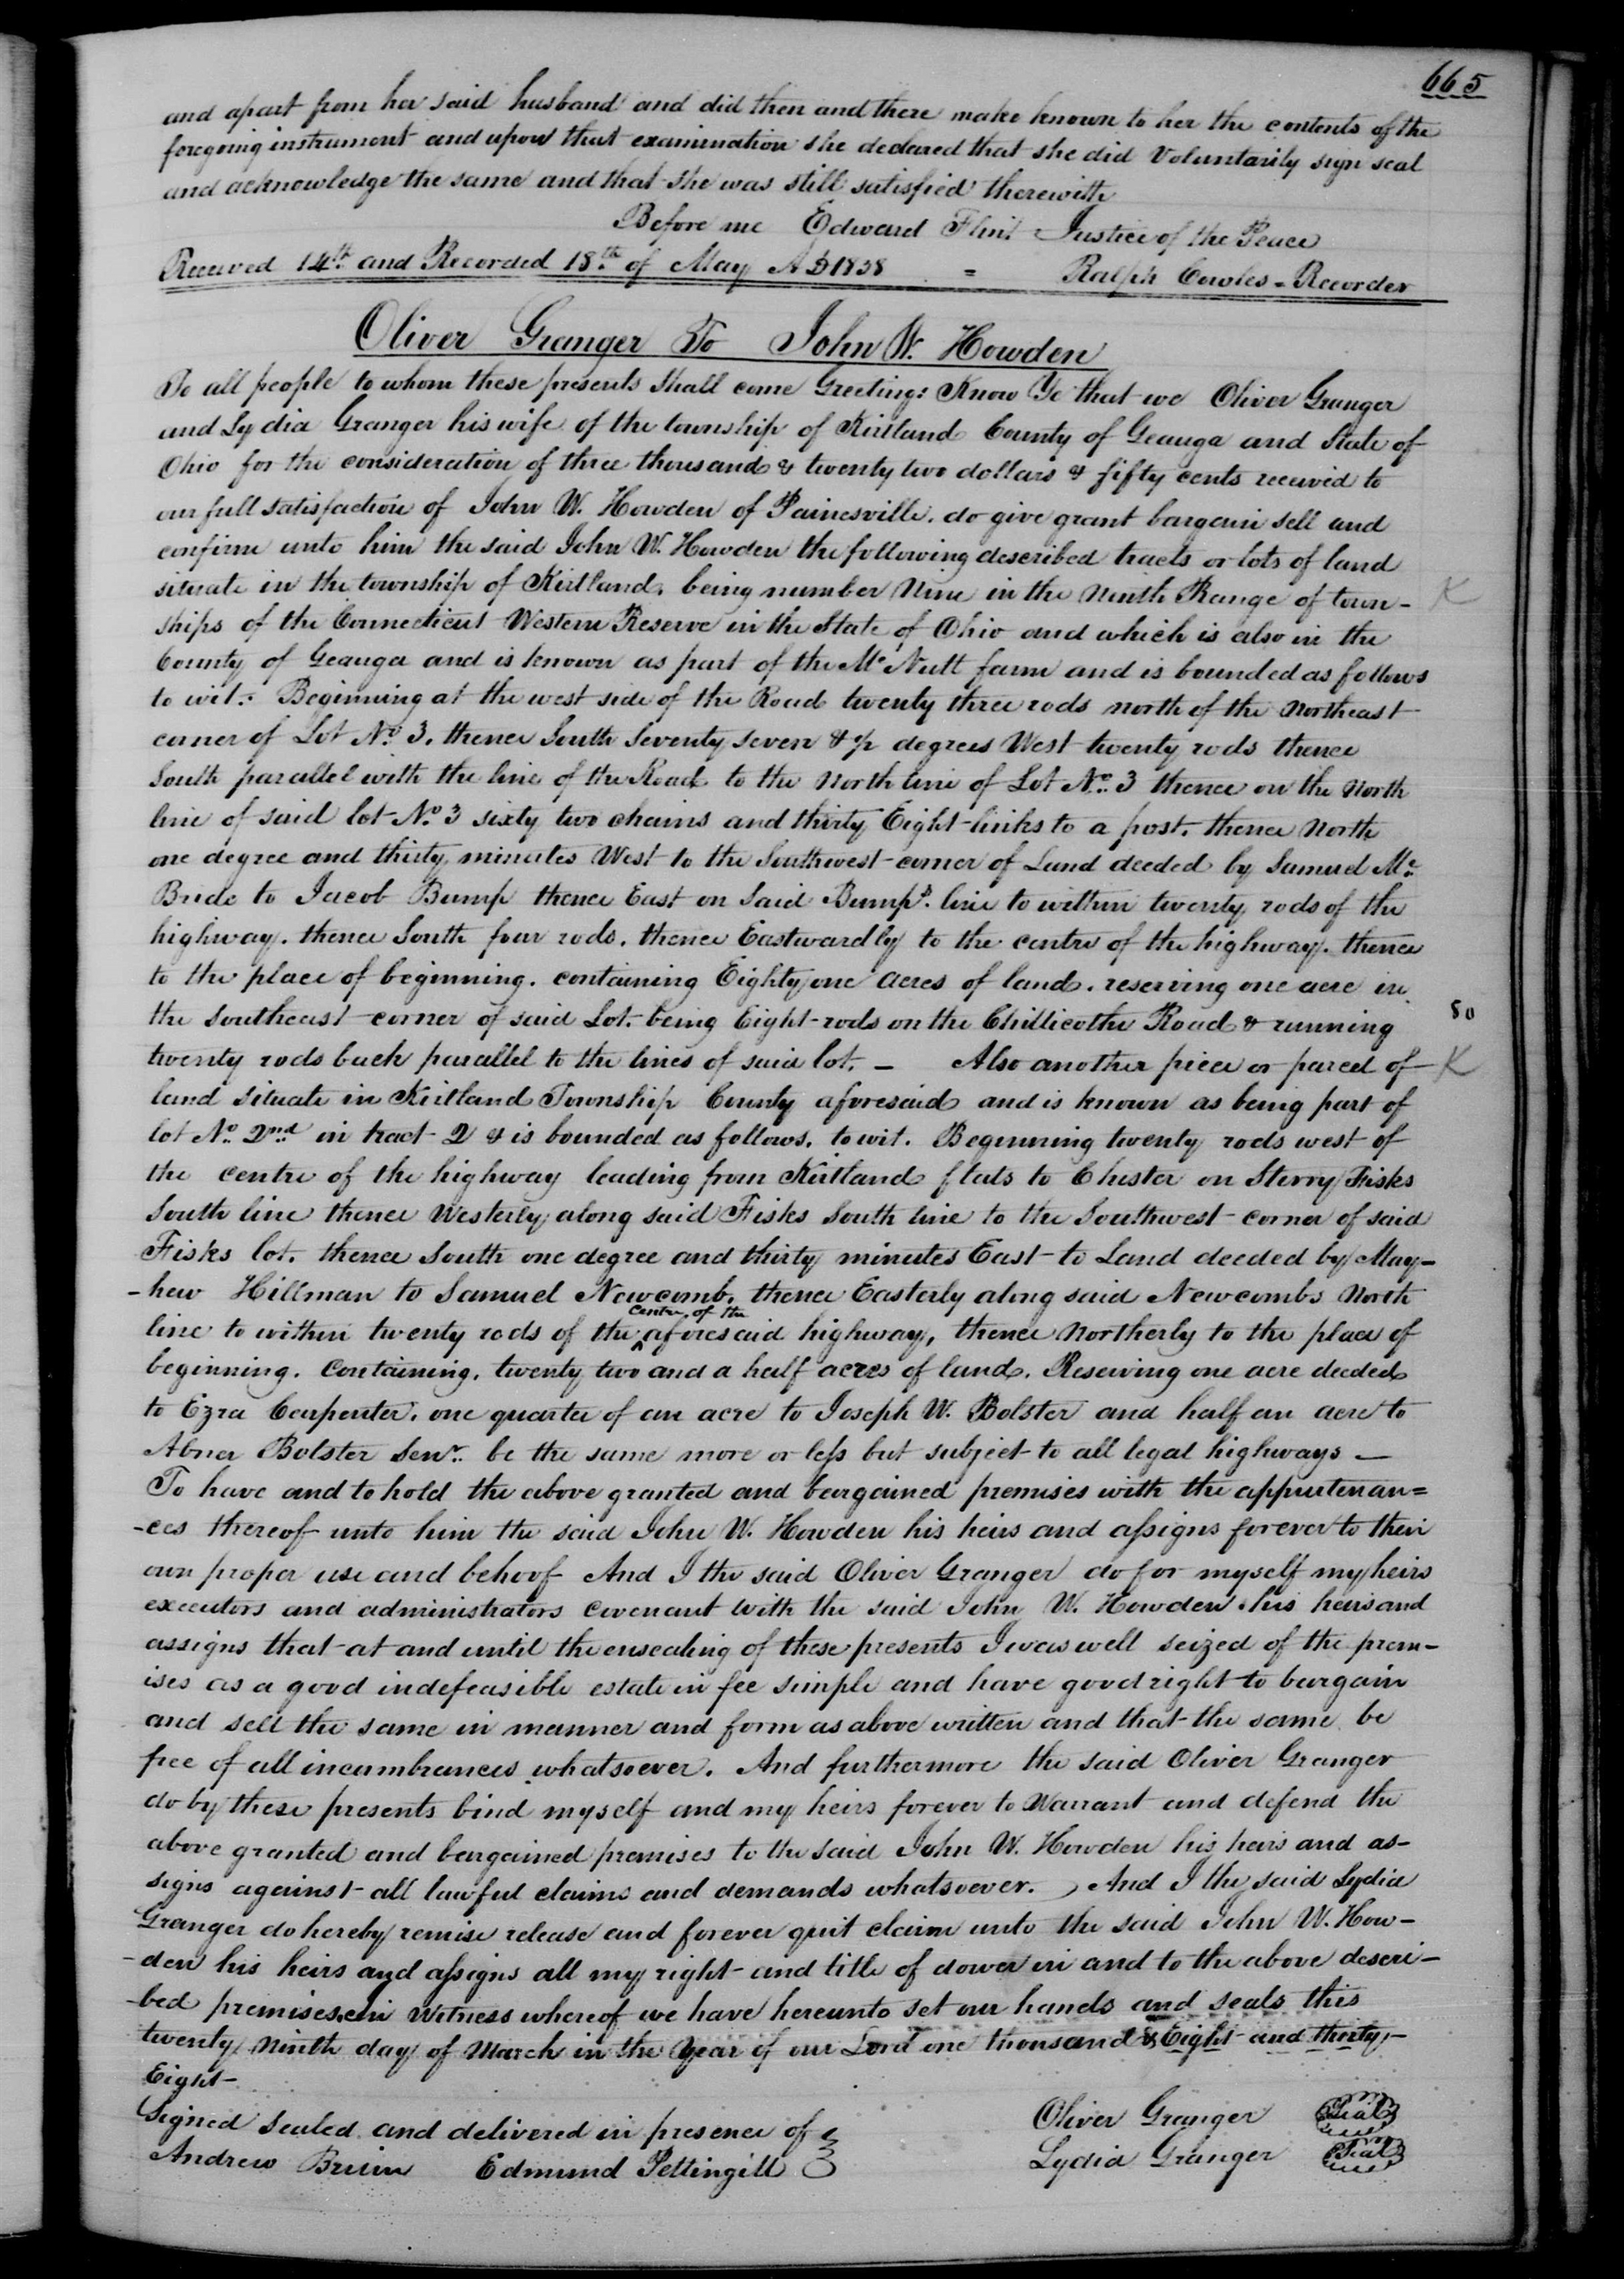 665
and apart from her said husband and did then and there make known to her the contents of the
foregoing instrument and upon that examination she declared that she did Voluntarily sign seal
and acknowledge the same and that she was still satisfied therewith
Before me Edward Flint Justice of the Peace
Received 14th and Recorded 18th of May A D 1838 = Ralph Cowles - Recorder
Oliver Granger To John W. Howden
To all people to whom these presents shall come Greeting: Know Ye that we Oliver Granger
and Lydia Granger his wife of the township of Kirtland County of Geauga and State of
Ohio for the consideration of three thousand & twenty two dollars & fifty cents received to
our full satisfaction of John W. Howden of Painesville. do give grant bargain sell and
confirm unto him the said John W. Howden the following described tracts or lots of land
situate in the township of Kirtland, being number Nine in the Ninth Range of town- K
ships of the Connecticut Western Reserve in the State of Ohio and which is also in the
County of Geauga and is known as part of the Mc Nutt farm and is bounded as follows
to wit: Beginning at the west side of the Road twenty three rods north of the Northeast
corner of Lot No. 3. thence South Seventy Seven & ½ degrees West twenty rods thence
South parallel with the line of the Road to the North line of Lot No. 3 thence on the North
line of said lot No. 3 sixty two chains and thirty Eight links to a post. thence North
one degree and thirty minutes West to the Southwest corner of Land deeded by Samuel Mc
Bride to Jacob Bump thence East on Said Bumps. line to within twenty rods of the
highway. thence South four rods. thence Eastwardly to the centre of the highway. thence
to the place of beginning. containing Eighty one acres of land. reserving one acre in
the Southeast corner of said Lot. being Eight rods on the Chillicothe Road & running 80
twenty rods back parallel to the lines of said lot. - Also another piece or parcel of K
land situate in Kirtland Township County aforesaid and is known as being part of
lot No. 2nd in tract 2 & is bounded as follows. to wit. Beginning twenty rods west of
the centre of the highway leading from Kirtland flats to Chester on Sterry Fisks
South line thence Westerly along said Fisks South line to the Southwest corner of said
Fisks lot. thence South one degree and thirty minutes East to Land deeded by May-
-hew Hillman to Samuel Newcomb. thence Easterly along said Newcombs North
centre of the
line to within twenty rods of the ‸ aforesaid highway, thence Northerly to the place of
beginning. Containing. twenty two and a half acres of land. Reserving one acre deeded
to Ezra Carpenter. one quarter of an acre to Joseph W. Bolster and half an acre to
Abner Bolster Senr. be the same more or less but subject to all legal highways -
To have and to hold the above granted and bargained premises with the appurtenan=
-ces thereof unto him the said John W. Howden his heirs and assigns forever to their
own proper use and behoof And I the said Oliver Granger do for myself my heirs
executors and administrators covenant with the said John W. Howden his heirs and
assigns that at and until the ensealing of these presents I was well seized of the prem-
ises as a good indefeasible estate in fee simple and have good right to bargain
and sell the same in manner and form as above written and that the same be
free of all incumbrances whatsoever. And furthermore the said Oliver Granger
do by these presents bind myself and my heirs forever to Warrant and defend the
above granted and bargained premises to the said John W. Howden his heirs and as-
signs against all lawful claims and demands whatsoever. And I the said Lydia
Granger do hereby remise release and forever quit claim unto the said John W. How-
-den his heirs and assigns all my right and title of dower in and to the above descri-
-bed premises. in Witness whereof we have hereunto set our hands and seals this
twenty Ninth day of March in the Year of our Lord one thousand & Eight and thirty-
Eight-
Signed Sealed and delivered in presence of Oliver Granger Seal
Andrew Edmund Pettingill Lydia Granger Seal